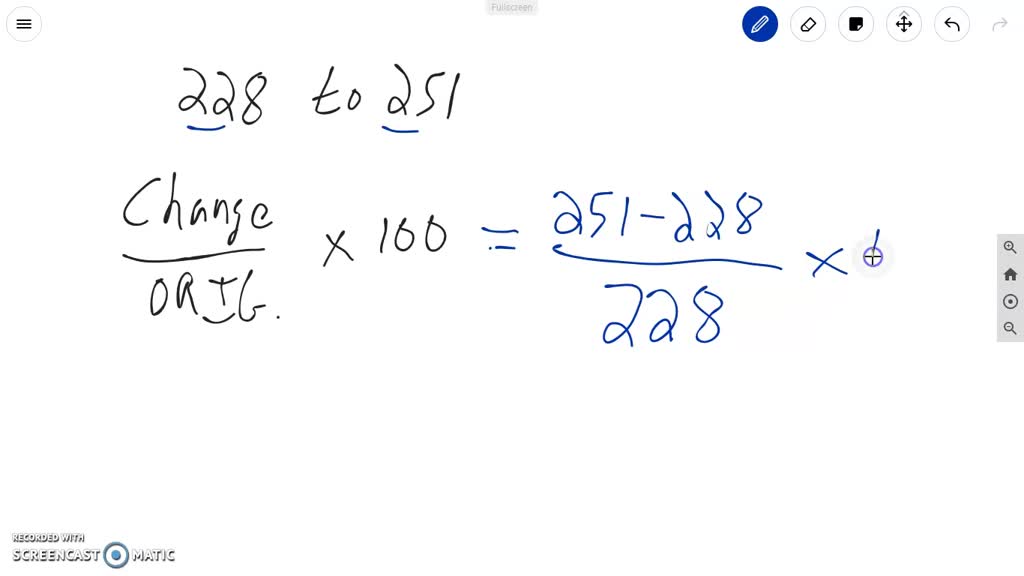 Fullscreen
228 to 251
Change
ORIG.
× 100 =
251-228
228
×
RECORDED WITH
SCREENCAST MATIC